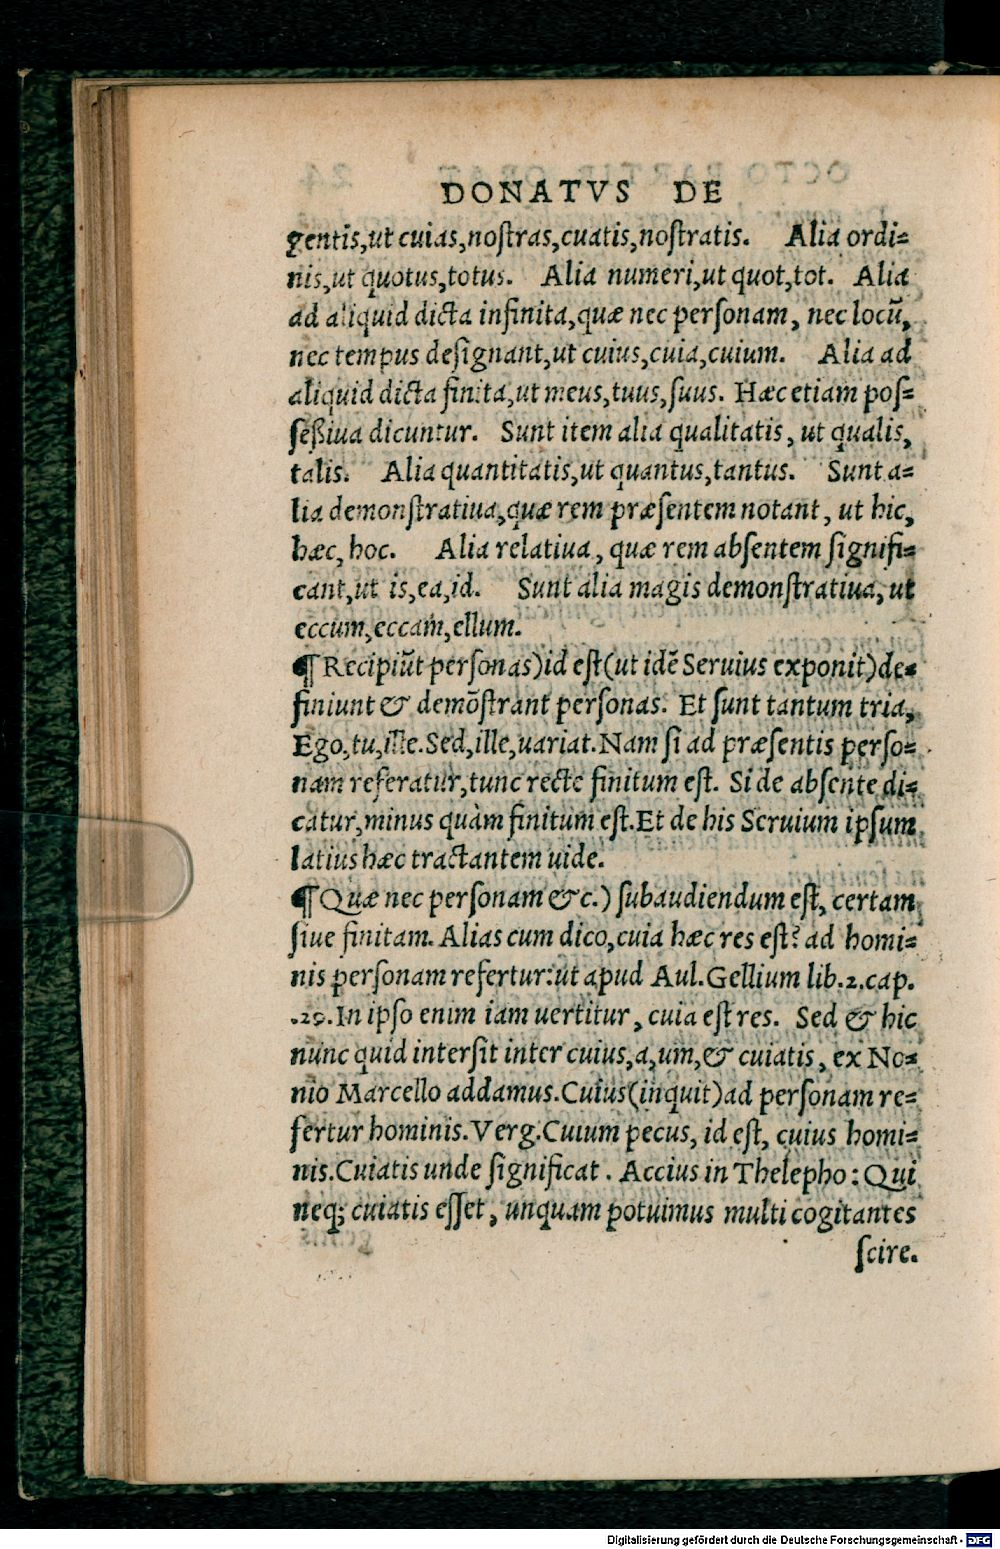 DONATVS DE
gentis,ut cuias,nostras,cuatis,nostratis. Alia ordi=
nis,ut quotus,totus. Alia numeri,ut quot,tot. Alia
ad aliquid dicta infinita,quæ nec personam, nec locū,
nec tempus designant,ut cuius,cuia,cuium. Alia ad
aliquid dicta finita,ut meus,tuus,suus. Hæc etiam pos=
seßiua dicuntur. Sunt item alia qualitatis, ut qualis,
talis. Alia quantitatis,ut quantus,tantus. Sunt a=
lia demonstratiua,quæ rem præsentem notant, ut hic,
hæc, hoc. Alia relatiua, quæ rem absentem signifi=
cant,ut is,ea,id. Sunt alia magis demonstratiua, ut
eccum,eccam,ellum.
¶ Recipiūt personas)id est(ut idē Seruius exponit)de=
finiunt & demōstrant personas. Et sunt tantum tria,
Ego,tu,ille.Sed,ille,uariat.Nam si ad præsentis perso=
nam referatur,tunc recte finitum est. Si de absente di=
catur,minus quàm finitum est.Et de his Seruium ipsum
latius hæc tractantem uide.
¶ Quæ nec personam &c.) subaudiendum est, certam
siue finitam. Alias cum dico,cuia hæc res est? ad homi=
nis personam refertur:ut apud Aul.Gellium lib.2.cap.
.29.In ipso enim iam uertitur, cuia est res. Sed & hic
nunc quid intersit inter cuius,a,um,& cuiatis, ex No=
nio Marcello addamus.Cuius(inquit)ad personam re=
fertur hominis.Verg.Cuium pecus, id est, cuius homi=
nis.Cuiatis unde significat. Accius in Thelepho: Qui
neq; cuiatis esset, unquam potuimus multi cogitantes
scire.
Digitalisierung gefördert durch die Deutsche Forschungsgemeinschaft - DFG